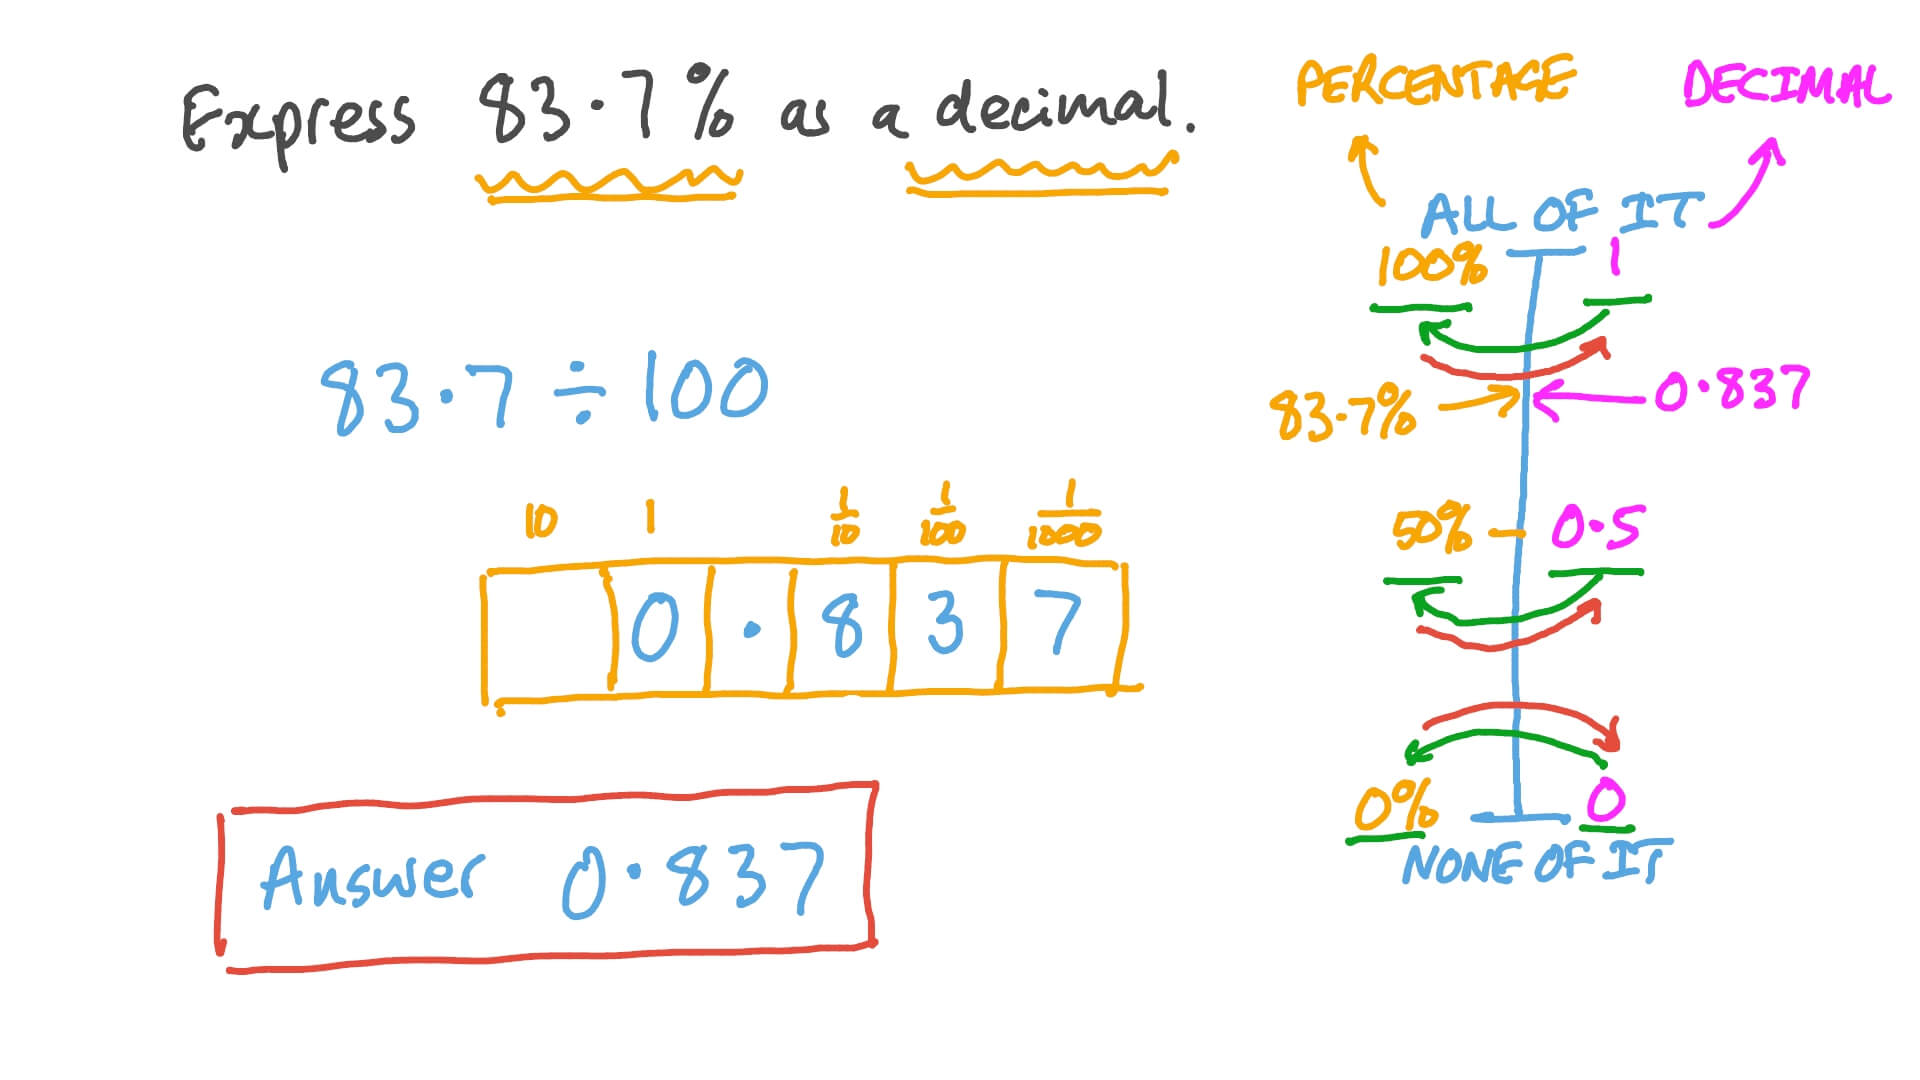 Express 83.7% as a decimal.
83.7 ÷ 100
10 1 1/10 1/100 1/1000
0 . 8 3 7
Answer 0.837
PERCENTAGE DECIMAL
ALL OF IT
100% 1
83.7% 0.837
50% 0.5
0% 0
NONE OF IT